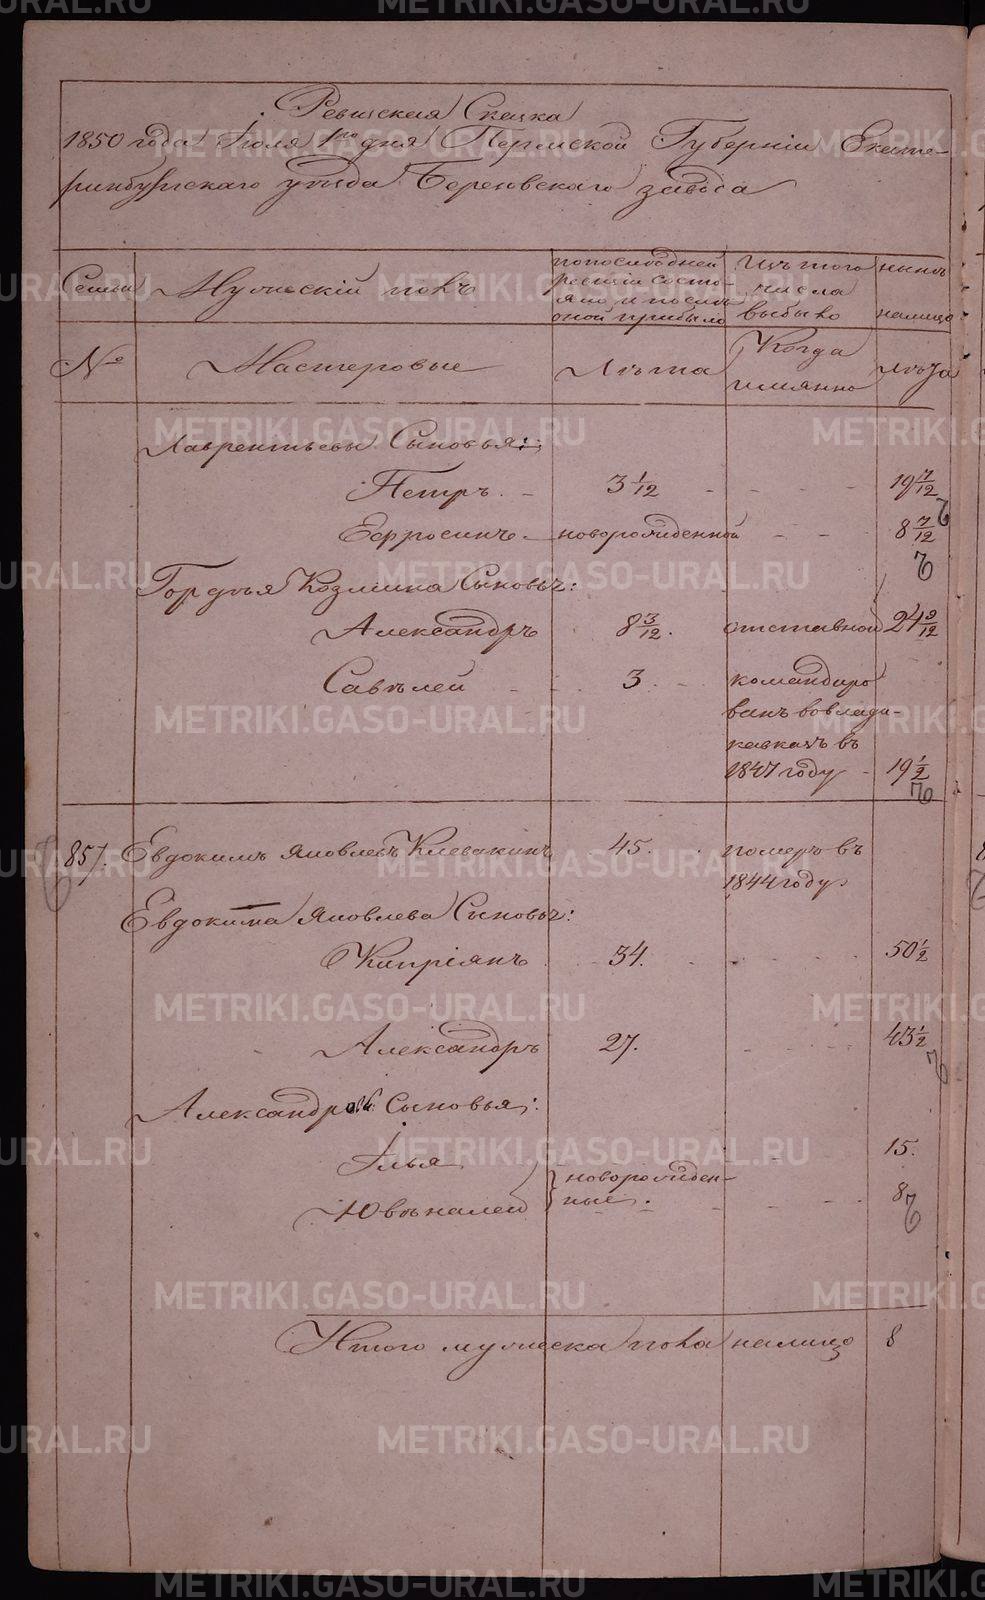 Ревизская Сказка
1850 года Іюля 1го дня Пермской Губерніи Екате-
ринбургскаго уѣзда Березовскаго завода
Семьи
Мужескій полъ
по последней
ревизіи состо-
яло и послѣ
оной прибыло
Изъ того
числа
выбыло
нынѣ
налицо
№
Мастеровые
Лѣта
Когда
имянно
Лѣта
Лаврентьевы Сыновья:
Петръ. 3 1/12 19 7/12
Ефросинъ новорожденной 8 7/12
Гордѣя Козмина Сыновья:
Александръ 8 3/12. отставной 24 9/12
Савѣлей 3. командиро
ванъ вовлади-
кавказъ въ
1847 году 19 1/2
857. Евдокимъ Яковлевъ Клевакинъ 45. померъ въ
1844 году
Евдокима Яковлева Сыновья:
Кипріянъ 34. 50 1/2
Александръ 27. 43 1/2
Александровы Сыновья:
Илья 15.
новорожден-
ные.
Ювѣналей 8
Итого мужеска пола налицо 8
METRIKI.GASO-URAL.RU